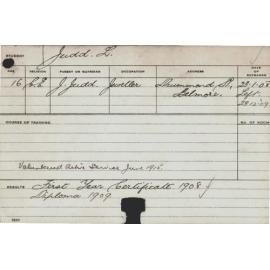 STUDENT Judd. L.
AGE RELIGION PARENT OR GUARDIAN OCCUPATION ADDRESS DATE OF ENTRANCE
16 C.E. J. Judd Jeweller Drummond St, 28-1-08
Belmore. Left.
COURSE OF TRAINING
Volunteered Active Service June 1915.
RESULTS First Year Certificate 1908
Diploma 1909